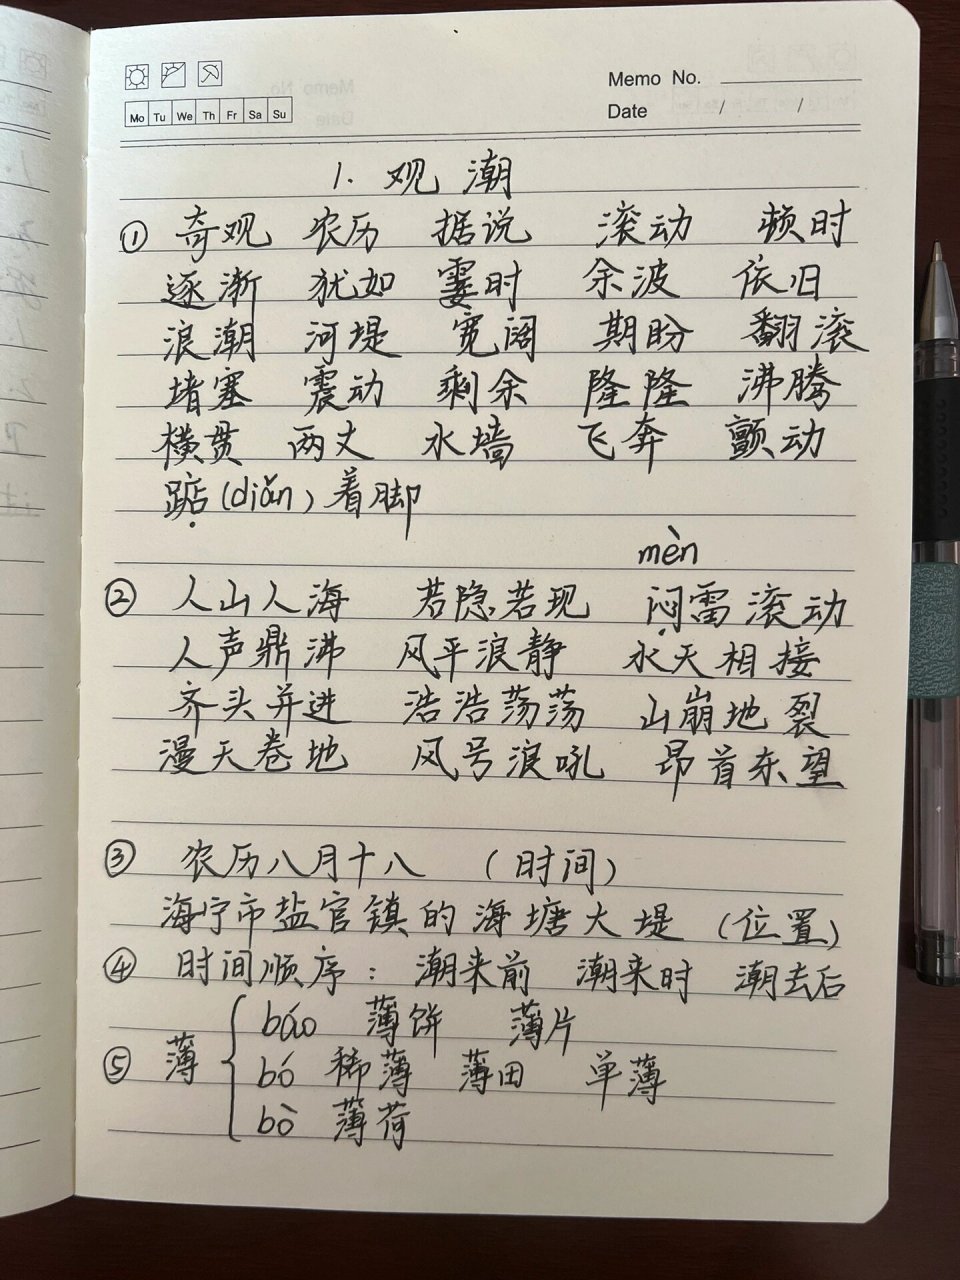 Memo No.
Mo Tu We Th Fr Sa Su
Date / /
1. 观潮
① 奇观 农历 据说 滚动 顿时
逐渐 犹如 霎时 余波 依旧
浪潮 河堤 宽阔 期盼 翻滚
堵塞 震动 剩余 隆隆 沸腾
横贯 两丈 水墙 飞奔 颤动
踮(diǎn)着脚
mèn
② 人山人海 若隐若现 闷雷滚动
人声鼎沸 风平浪静 水天相接
齐头并进 浩浩荡荡 山崩地裂
漫天卷地 风号浪吼 昂首东望
③ 农历八月十八 (时间)
海宁市盐官镇的海塘大堤 (位置)
④ 时间顺序: 潮来前 潮来时 潮去后
báo 薄饼 薄片
⑤ 薄 bó 稀薄 薄田 单薄
bò 薄荷